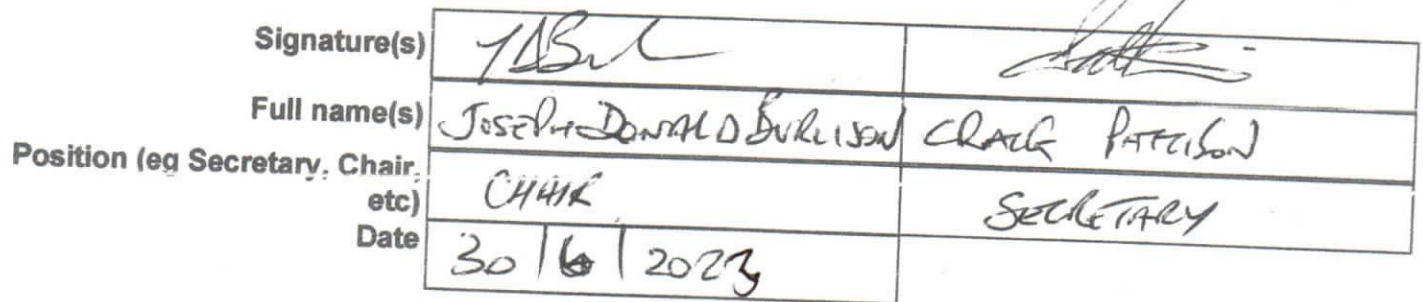 Signature(s)
Full name(s) JOSEPH DONALD BURLISON CRAIG PATTISON
Position (eg Secretary, Chair, etc) CHAIR SECRETARY
Date 30/6/2023